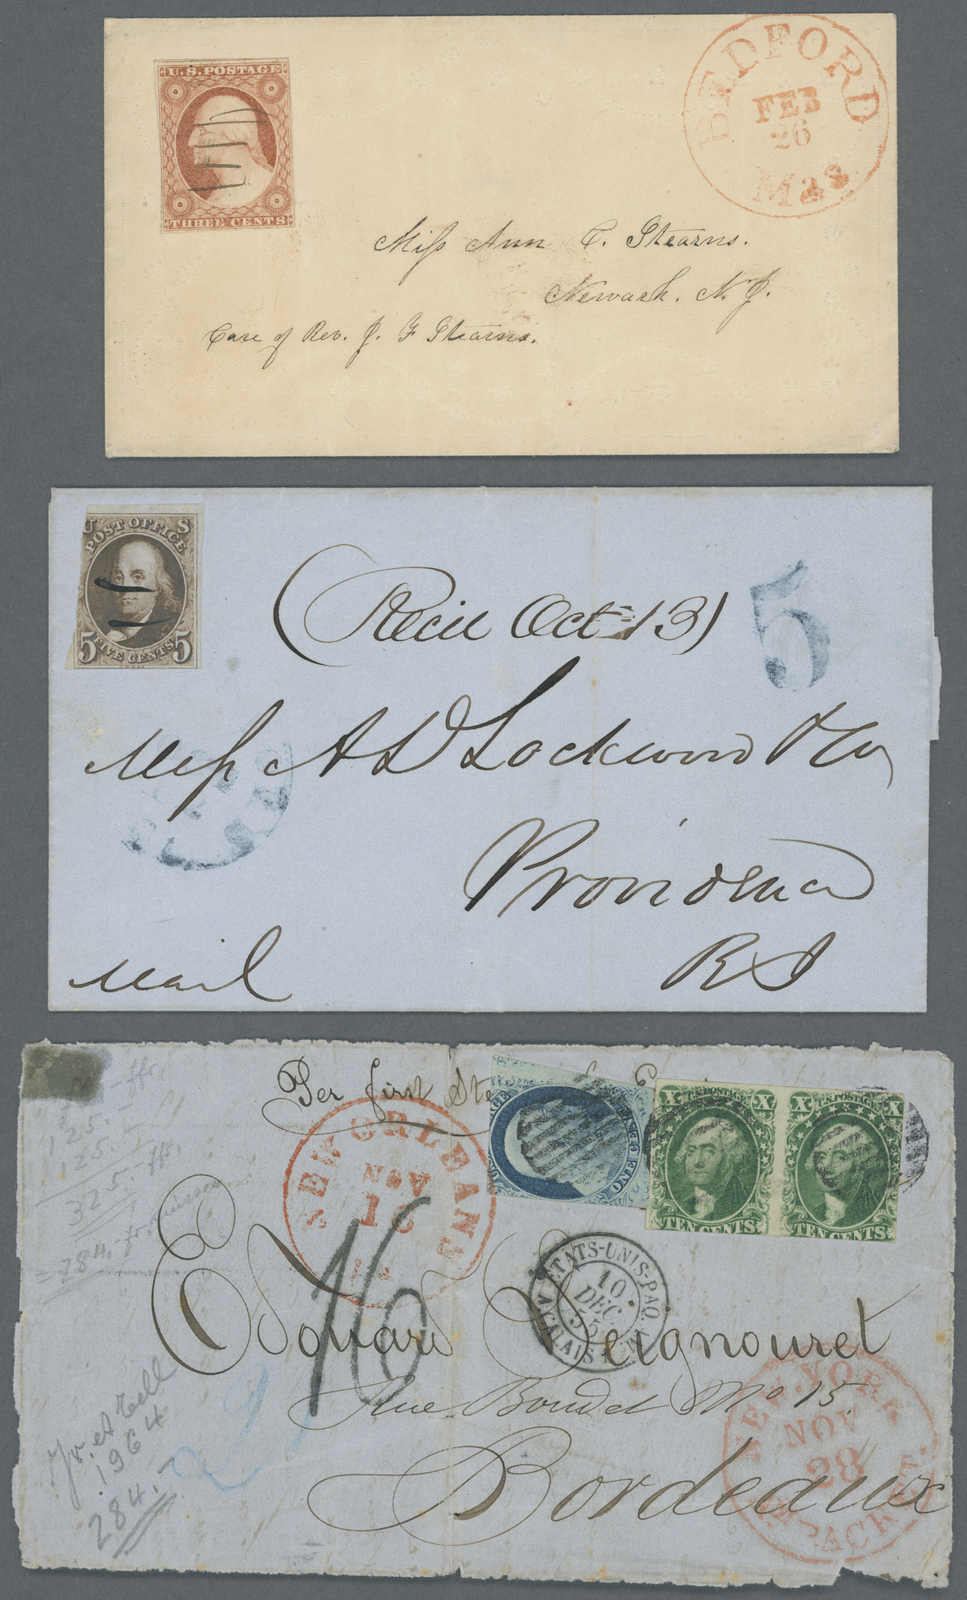 U.S. POSTAGE
THREE CENTS
BEDFORD
FEB
26
Mas
Miss Ann C. Stearns.
Newark. N. J.
Care of Rev. J. F. Stearns.
U S
POST OFFICE
5 FIVE CENTS 5
(Recd Oct 13)
5
A D Lockwood & Co
Providence
R I
Mail
Per first
NEW ORLEANS
NOV
16
ONE CENT
X U.S. POSTAGE X
TEN CENTS
X U.S. POSTAGE X
TEN CENTS
ETATS-UNIS-PAQ.
10
DEC.
55
CALAIS
Edouard Seignouret
Rue Boudet No 15.
Bordeaux
NEW YORK
NOV
28
PACKET
125.-
325.-
284.-
1964
284.-